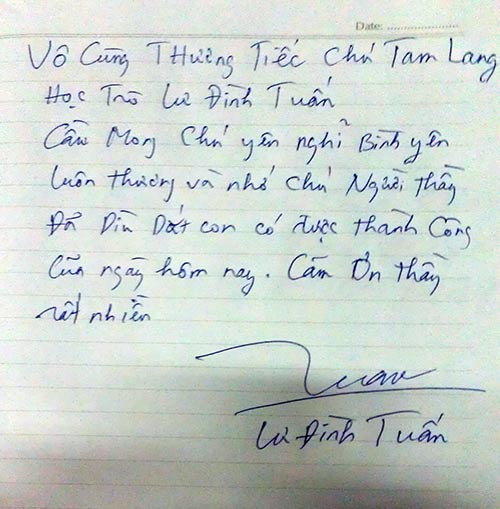 Date: ........................
Vô Cùng Thương Tiếc Chú Tam Lang
Học Trò Lư Đình Tuấn
Cầu Mong Chú yên nghĩ Bình yên
luôn thương và nhớ chú Người thầy
Đã Dìu Dắt con có được thành Công
Của ngày hôm nay. Cám Ơn thầy
rất nhiều
Tuấn
Lư Đình Tuấn